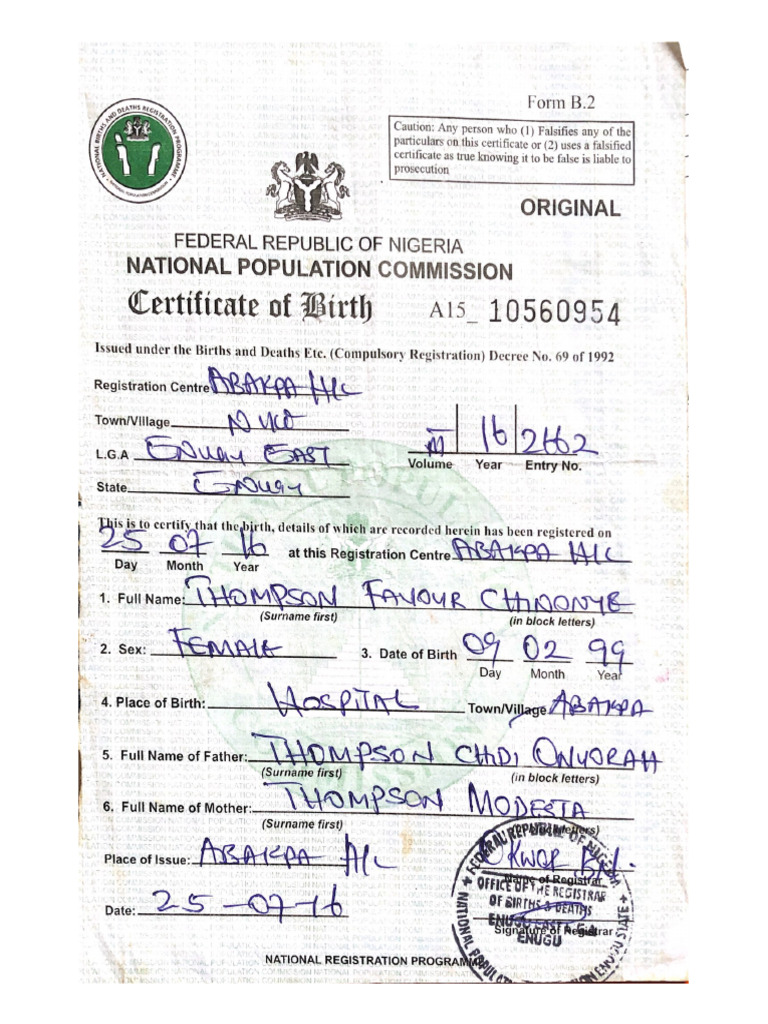 Form B.2
Caution: Any person who (1) Falsifies any of the
particulars on this certificate or (2) uses a falsified
certificate as true knowing it to be false is liable to
prosecution
NATIONAL BIRTHS AND DEATHS REGISTRATION PROGRAMME
NATIONAL POPULATION COMMISSION
ORIGINAL
FEDERAL REPUBLIC OF NIGERIA
NATIONAL POPULATION COMMISSION
Certificate of Birth A15_ 10560954
Issued under the Births and Deaths Etc. (Compulsory Registration) Decree No. 69 of 1992
Registration Centre ABAKPA H/C
Town/Village
L.G.A ENUGU EAST
16 2662
Volume Year Entry No.
State ENUGU
This is to certify that the birth, details of which are recorded herein has been registered on
25 07 16 at this Registration Centre ABAKPA H/C
Day Month Year
1. Full Name: THOMPSON FAVOUR CHINONYE
(Surname first) (in block letters)
2. Sex: FEMALE 3. Date of Birth 09 02 99
Day Month Year
4. Place of Birth: HOSPITAL Town/Village ABAKPA
5. Full Name of Father: THOMPSON CHIDI ONUORAH
(Surname first) (in block letters)
6. Full Name of Mother: THOMPSON MODESTA
(Surname first) (in block letters)
Place of Issue: ABAKPA H/C
Name of Registrar
Date: 25-07-16
Signature of Registrar
FEDERAL REPUBLIC OF NIGERIA
OFFICE OF THE REGISTRAR
OF BIRTHS & DEATHS
ENUGU EAST L.G.A
ENUGU
NATIONAL REGISTRATION PROGRAMME